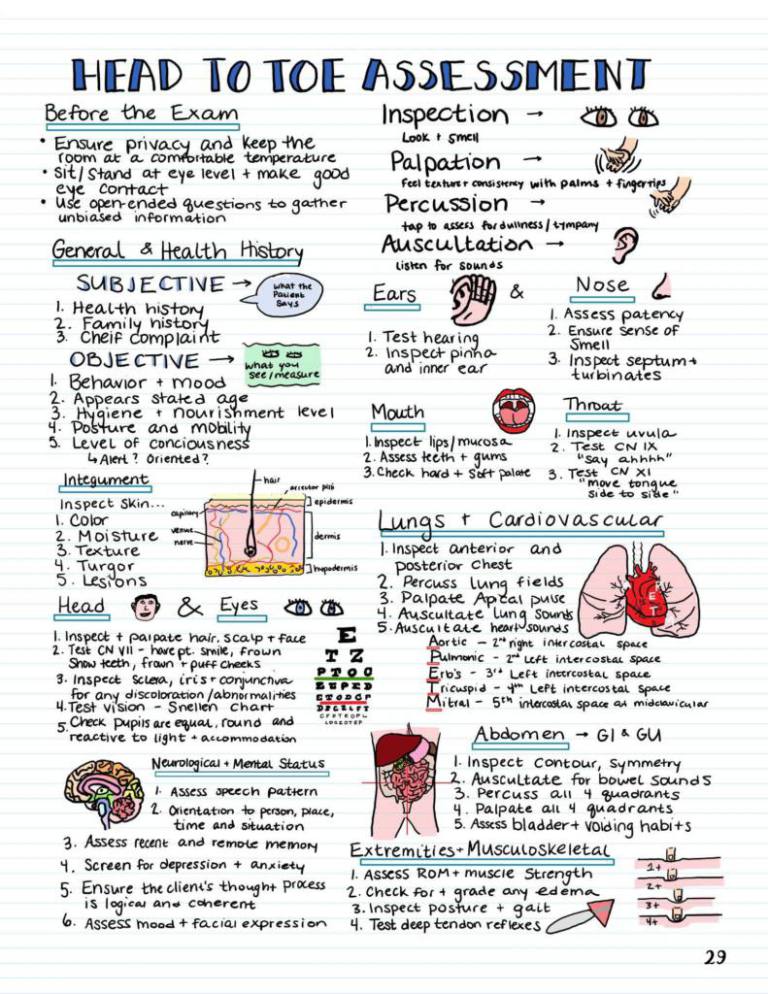 HEAD TO TOE ASSESSMENT
Before the Exam
• Ensure privacy and keep the
room at a comfortable temperature
• Sit/Stand at eye level + make good
eye contact
• Use open-ended questions to gather
unbiased information
Inspection →
Look + smell
Palpation →
feel texture + consistency with palms + fingertips
Percussion →
tap to assess for dullness/tympany
Auscultation →
listen for sounds
General & Health History
SUBJECTIVE →
what the
Patient
says
1. Health history
2. Family history
3. Cheif complaint
OBJECTIVE →
what you
see/measure
1. Behavior + mood
2. Appears stated age
3. Hygiene + nourishment level
4. Posture and mobility
5. Level of conciousness
↳ Alert? Oriented?
Ears
&
Nose
1. Test hearing
2. Inspect pinna
and inner ear
1. Assess patency
2. Ensure sense of
Smell
3. Inspect septum +
turbinates
Mouth
1. Inspect lips/mucosa
2. Assess teeth + gums
3. Check hard + soft palate
Throat
1. Inspect uvula
2. Test CN IX
"say ahhhh"
3. Test CN XI
"move tongue
side to side"
Integument
Inspect Skin...
1. Color
2. Moisture
3. Texture
4. Turgor
5. Lesions
hair
arrector pili
epidermis
capillary
venule
nerve
dermis
hypodermis
Lungs + Cardiovascular
1. Inspect anterior and
posterior chest
2. Percuss lung fields
3. Palpate Apical pulse
4. Auscultate lung sounds
5. Auscultate heart sounds
Aortic – 2nd right intercostal space
Pulmonic – 2nd Left intercostal space
Erb's – 3rd Left intercostal space
Tricuspid – 4th Left intercostal space
Mitral – 5th intercostal space at midclavicular
E
T
Head
&
Eyes
1. Inspect + palpate hair, scalp + face
2. Test CN VII – have pt. smile, frown
Show teeth, frown + puff cheeks
3. Inspect Sclera, iris + conjunctiva
for any discoloration/abnormalities
4. Test vision – Snellen chart
5. Check pupils are equal, round and
reactive to light + accommodation
E
T Z
Neurological + Mental Status
1. Assess speech pattern
2. Orientation to person, place,
time and situation
3. Assess recent and remote memory
4. Screen for depression + anxiety
5. Ensure the client's thought process
is logical and coherent
6. Assess mood + facial expression
Abdomen → GI & GU
1. Inspect Contour, Symmetry
2. Auscultate for bowel sounds
3. Percuss all 4 quadrants
4. Palpate all 4 quadrants
5. Assess bladder + voiding habits
Extremities + Musculoskeletal
1. Assess ROM + muscle strength
2. Check for + grade any edema
3. Inspect posture + gait
4. Test deep tendon reflexes
1+
2+
3+
4+
29